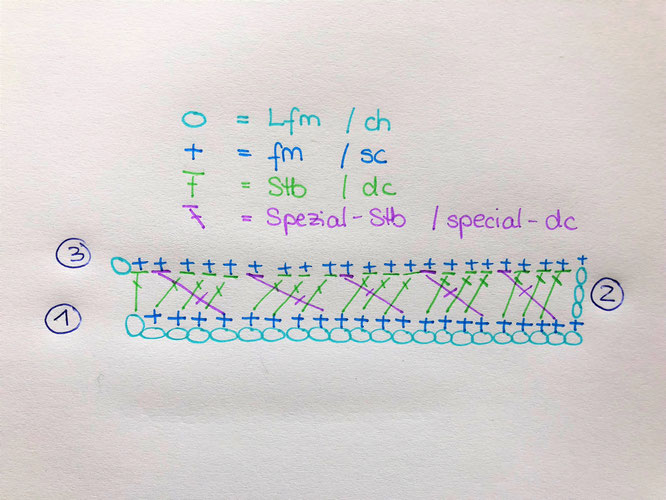 O = Lfm / ch
+ = fm / sc
Ŧ = Stb / dc
= Spezial-Stb / special-dc
3
2
1